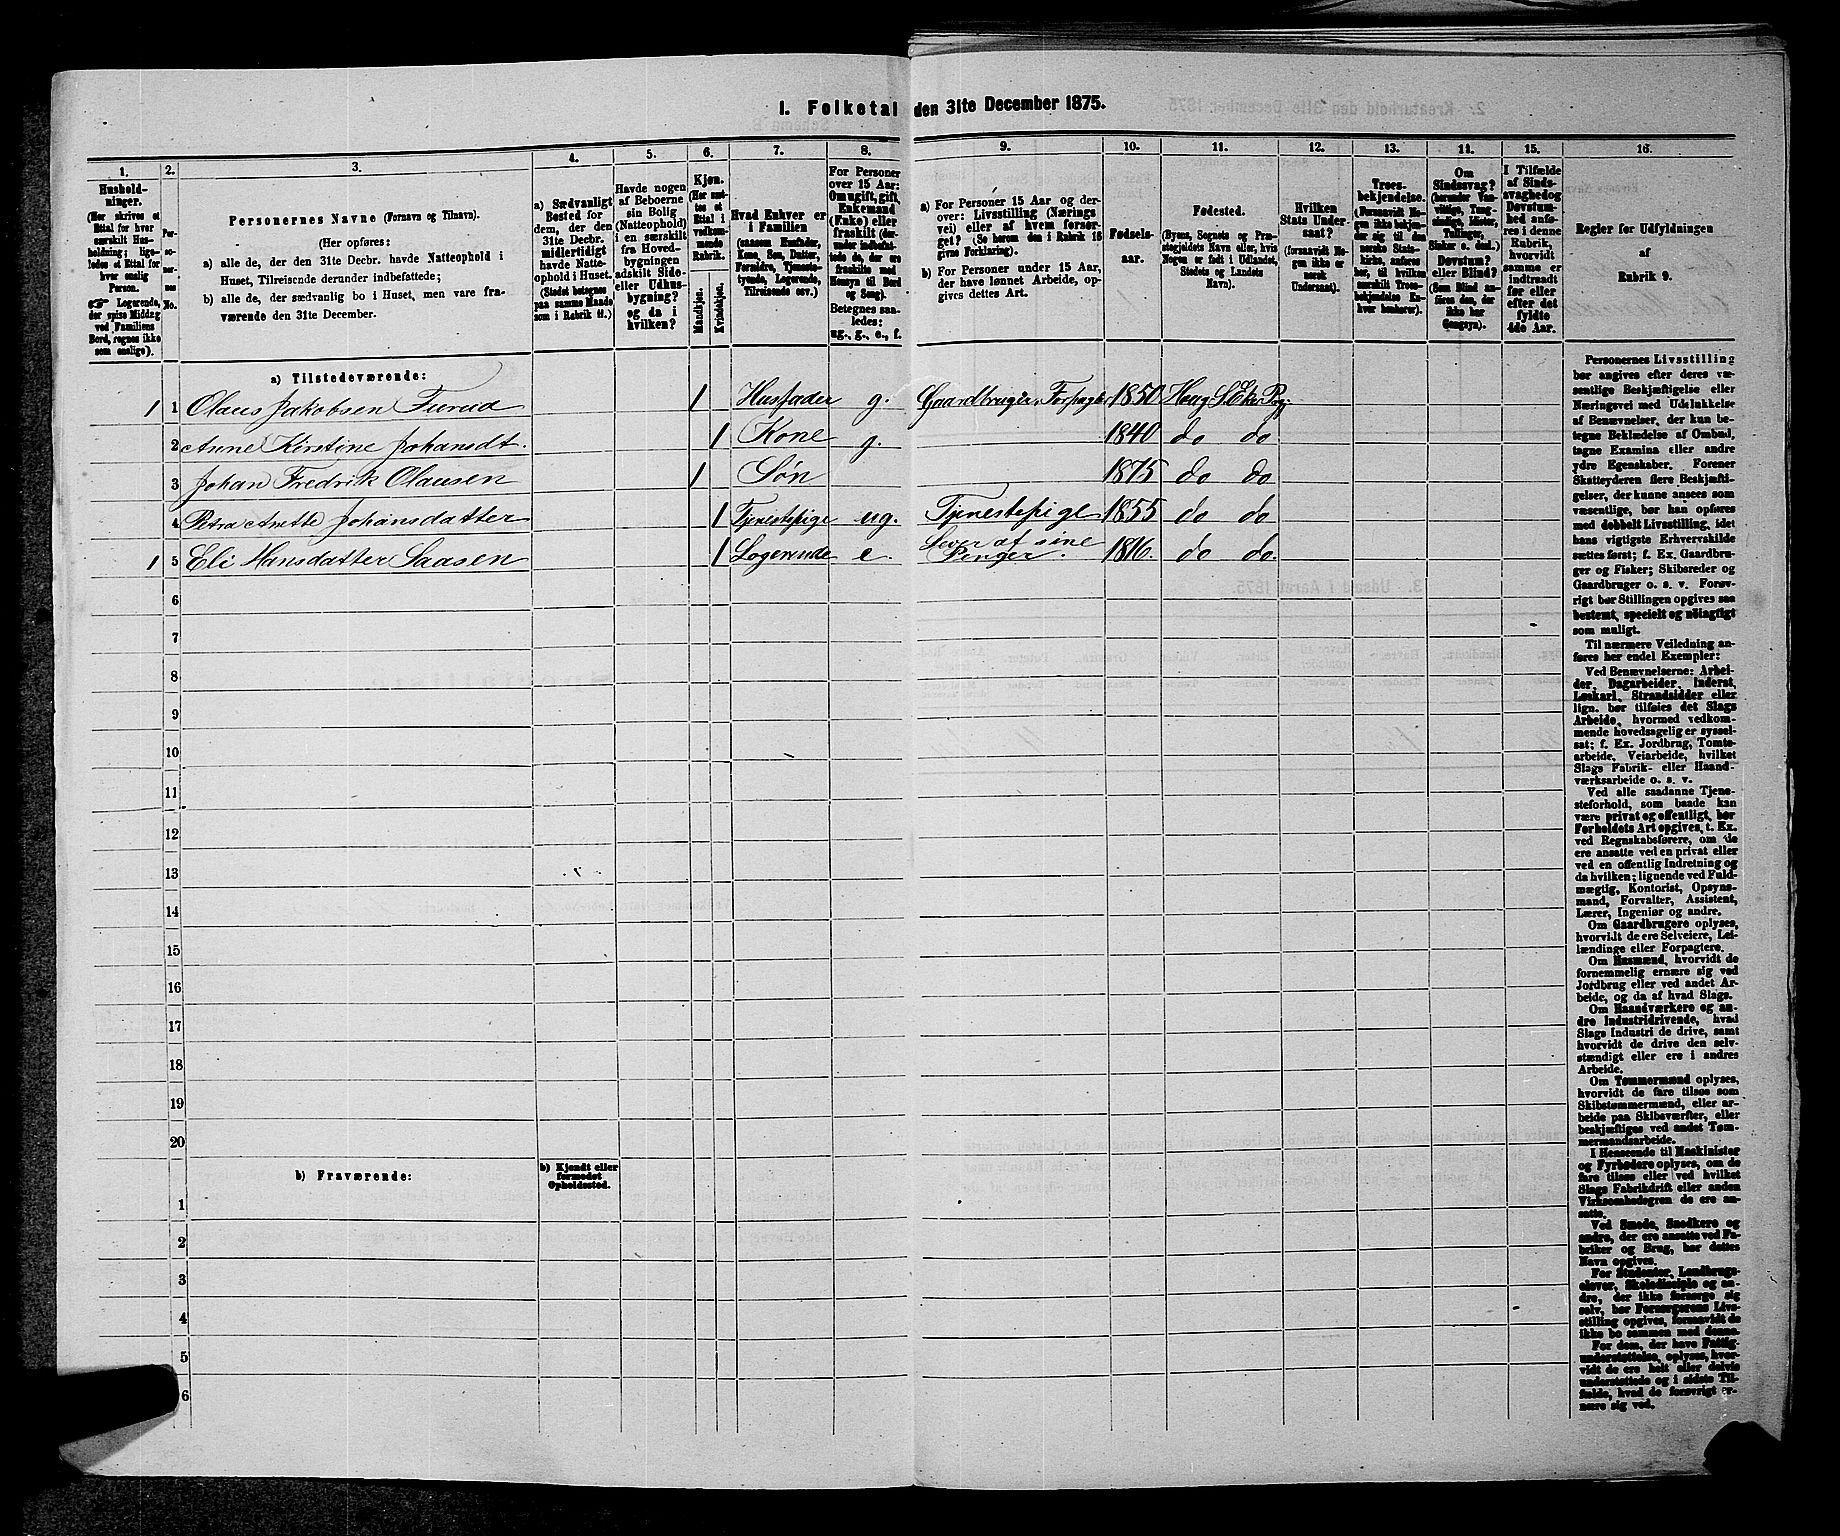 1. Folketal den 31te December 1875.
1. 2. 3. 4. 5. 6. 7. 8. 9. 10. 11. 12. 13. 14. 15. 16.
Hushold-
ninger.
(Her skrives et
Ettal for hver
særskilt Hus-
holdning; lige-
ledes et Ettal for
hver enslig
Person.
☞ Logerende,
der spise Middag
ved Familiens
Bord, regnes ikke
som enslige).
Per-
so-
ner-
nes
No.
Personernes Navne (Fornavn og Tilnavn).
(Her opføres:
a) alle de, der den 31te Decbr. havde Natteophold i
Huset, Tilreisende derunder indbefattede;
b) alle de, der sædvanlig bo i Huset, men vare fra-
værende den 31te December.
a) Sædvanligt
Bosted for
dem, der den
31te Decbr.
midlertidigt
havde Natte-
ophold i Huset.
(Stedet betegnes
paa samme Maade
som i Rubrik 11.)
Havde nogen
af Beboerne
sin Bolig
(Natteophold)
i en særskilt
fra Hoved-
bygningen
adskilt Side-
eller Udhus-
bygning?
og da i
hvilken?
Kjøn.
(Her sæt-
tes et
Ettal i
vedkom-
mende
Rubrik.
Mandkjøn.
Kvindekjøn.
Hvad Enhver er
i Familien
(saasom Husfader,
Kone, Søn, Datter,
Forældre, Tjeneste-
tyende, Logerende,
Tilreisende osv.)
For Personer
over 15 Aar:
Om ugift, gift,
Enkemand
(Enke) eller
fraskilt (der-
under indbefat-
tede de, der ere
fraskilte med
Hensyn til Bord
og Seng).
Betegnes saa-
ledes:
ug., g., e., f.
a) For Personer 15 Aar og der-
over: Livsstilling (Nærings-
vei) eller af hvem forsør-
get? (Se herom den i Rubrik 16
givne Forklaring).
b) For Personer under 15 Aar,
der have lønnet Arbeide, op-
gives dettes Art.
Fødsels-
aar.
Fødested.
(Byens, Sognets og Præ-
stegjeldets Navn eller, hvis
Nogen er født i Udlandet,
Stedets og Landets
Navn).
Hvilken
Stats Under-
saat?
(forsaavidt No-
gen ikke er
norsk
Undersaat).
Troes-
bekjendelse.
(Forsaavidt No-
gen ikke bekjen-
der sig til den
norske Stats-
kirke, anføres
her, til hvilken
særskilt Troes-
bekjendelse En-
hver henhører).
Om
Sindssvag?
(herunder Van-
vittige, Tung-
sindige, Idioter,
Tullinger,
Sinker o. desl.)
Døvstum?
eller Blind?
(Som Blind an-
føres den, der
ikke har
Gangsyn).
I Tilfælde
af Sinds-
svaghed og
Døvstum-
hed anfø-
res i denne
Rubrik,
hvorvidt
samme er
indtraadt
før eller
efter det
fyldte
4de Aar.
Regler for Udfyldningen
af
Rubrik 9.
a) Tilstedeværende:
1 1 Olaus Jakobsen Turud 1 Husfader g. Gaardbruger, Forpagter 1850 Haug S. Eker Pgj.
2 Anne Kirstine Johansdt. 1 Kone g. 1840 do do
3 Johan Fredrik Olausen 1 Søn 1875 do do
4 Petra Anette Johansdatter 1 Tjenestepige ug. Tjenestepige 1855 do do
1 5 Eli Hansdatter Saasen 1 Logerende e. Lever af sine
Penger. 1816. do do.
6
7
8
9
10
11
12
13
14
15
16
17
18
19
20
b) Fraværende:
b) Kjendt eller
formodet
Opholdssted.
1
2
3
4
5
6
Personernes Livsstilling
bør angives efter deres væ-
sentlige Beskjæftigelse eller
Næringsvei med Udelukkelse
af Benævnelser, der kun be-
tegne Beklædelse af Ombud,
tagne Examina eller andre
ydre Egenskaber. Forener
Skatteyderen flere Beskjæfti-
gelser, der kunne ansees som
væsentlige, bør han opføres
med dobbelt Livsstilling, idet
hans vigtigste Erhvervskilde
sættes først; f. Ex. Gaardbru-
ger og Fisker; Skibsreder og
Gaardbruger o. s. v. Forøv-
rigt bør Stillingen opgives saa
bestemt, specielt og nøiagtigt
som muligt.
Til nærmere Veiledning an-
føres her endel Exempler:
Ved Benævnelserne: Arbei-
der, Dagarbeider, Inderst,
Løskarl, Strandsidder eller
lign. bør tilføies det Slags
Arbeide, hvormed vedkom-
mende hovedsagelig er syssel-
sat; f. Ex. Jordbrug, Tomte-
arbeide, Veiarbeide, hvilket
Slags Fabrik- eller Haand-
værksarbeide o. s. v.
Ved alle saadanne Tjene-
steforhold, som baade kan
være privat og offentligt, bør
Forholdets Art opgives, t. Ex.
ved Regnskabsførere, om de
ere ansatte ved en privat eller
ved en offentlig Indretning og
da hvilken; lignende ved Fuld-
mægtig, Kontorist, Opsyns-
mand, Forvalter, Assistent,
Lærer, Ingeniør og andre.
Om Gaardbrugere oplyses,
hvorvidt de ere Selveiere, Lei-
lændinge eller Forpagtere.
Om Husmænd, hvorvidt de
fornemmelig ernære sig ved
Jordbrug eller ved andet Ar-
beide, og da af hvad Slags.
Om Haandværkere og an-
dre Industridrivende, hvad
Slags Industri de drive, samt
hvorvidt de drive den selv-
stændigt eller ere i andres
Arbeide.
Om Tømmermænd oplyses,
hvorvidt de fare tilsøs som
Skibstømmermænd, eller ar-
beide paa Skibsværfter, eller
beskjæftiges ved andet Tøm-
mermandsarbeide.
I Henseende til Maskinister
og Fyrbødere oplyses, om de
fare tilsøs eller ved hvilket
Slags Fabrikdrift eller anden
Virksomhedsgren de ere an-
satte.
Ved Smede, Snedkere og
andre, der ere ansatte ved Fa-
briker og Brug, bør dettes
Navn opgives.
For Studenter, Landbrugs-
elever, Skoledisciple og an-
dre, der ikke forsørge sig
selv, bør Forsørgerens Livs-
stilling opgives, forsaavidt de
ikke bo sammen med denne.
For dem, der have Fattig-
understøttelse, oplyses, hvor-
vidt de ere helt eller delvis
understøttede og i sidste Til-
fælde, hvad de forøvrigt er-
nære sig ved.